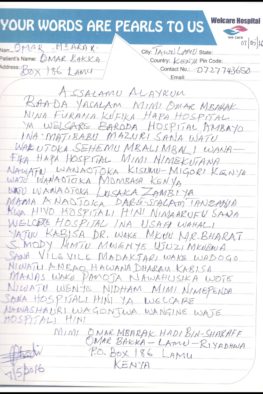 YOUR WORDS ARE PEARLS TO US
Welcare Hospital
Name: OMAR MBARAK
City: TAUNI LAMU State:
Patient's Name: OMAR BAKKA
Country: KENYA Pin Code:
Address:
Contact No.: 0727743650
BOX 186 LAMU
Email:
ASSALAMU ALAYKUM
BAADA YASALAM MIMI OMAR MBARAK
NINA FURAHA KUFIKA HAPA HOSPITAL
YA WELCARE BARODA HOSPITAL AMBAYO
INA MATIBABU MAZURI SANA WATU
WAKUTOKA SEHEMU MBALIMBALI WANA
FIKA HAPA HOSPITAL MIMI NIMEKUTANA
NAWATU WANAOTOKA KISUMU-MIGORI KENYA
WATU WANAOTOKA MOMBASA KENYA
WATU WANAOTOKA LUSAKA ZAMBIYA
MAMA ANAOTOKA DARUSALAAM TANZANIA
KWA HIVO HOSPITALI HINI NIMEFURAHI SANA
WELCARE HOSPITAL INA USAFI WAHALI
YAJUU KABISA DR. WAKE MKUU MR. BHARAT
S. MODY NIMTU MWENYE UJUZI MKUBWA
SANA VILE VILE MADAKTARI WAKE WADOGO
NIWATU AMBAO HAWANA DHARAU KABISA
MANAS WAKE PAMOJA NAWAHUSIKA WOTE
NIWATU WENYE NIDHAM MIMI NIMEPENDA
SANA HOSPITALI HINI YA WELCARE
NAWASHAURI WAGONJWA WANGINE WAJE
HOSPITALI HINI
MIMI OMAR MBARAK HADI BIN-SHARAFF
OMAR BAKKA - LAMU - RIYADHWA
P.O. BOX 186 LAMU
KENYA